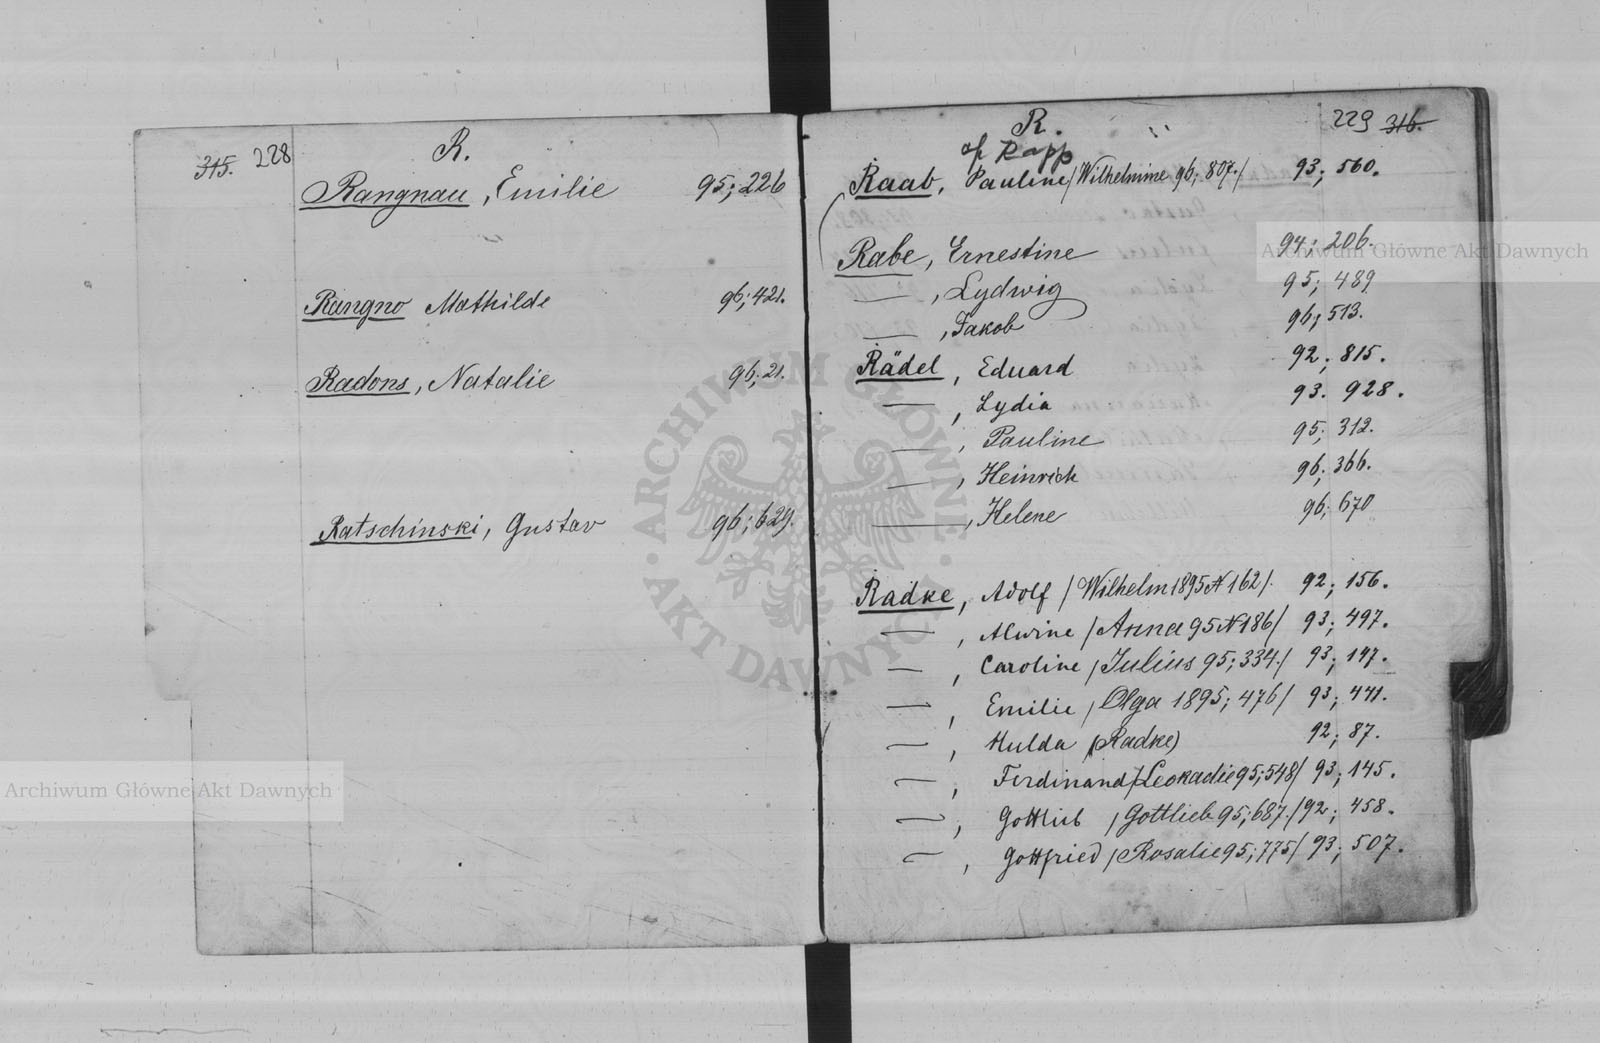 315. 228
R.
Rangnau, Emilie 95; 226
Rangno Mathilde 96; 421.
Radons, Natalie 96; 21.
Ratschinski, Gustav 96; 629.
R.
229 316.
cf Rapp
Raab, Pauline /Wilhelmine 96; 807./ 93; 560.
Rabe, Ernestine 94; 206.
—, Lydwig 95; 489
—, Jakob 96; 513.
Rädel, Eduard 92; 815.
—, Lydia 93. 928.
—, Pauline 95; 312.
—, Heinrich 96; 366.
—, Helene 96; 670
Radke, Adolf /Wilhelm 1895 N 162/. 92; 156.
—, Alwine /Anna 95 N 186/ 93; 497.
—, Caroline /Julius 95; 334./ 93; 147.
—, Emilie /Olga 1895; 476/ 93; 441.
—, Hulda (Radke) 92; 87.
—, Ferdinand /Leokadie 95; 548/ 93; 145.
—, Gottlieb /Gottlieb 95; 687./ 92; 458.
—, Gottfried /Rosalie 95; 775/ 93; 507.
Archiwum Główne Akt Dawnych
Archiwum Główne Akt Dawnych
· ARCHIWUM GŁÓWNE · AKT DAWNYCH